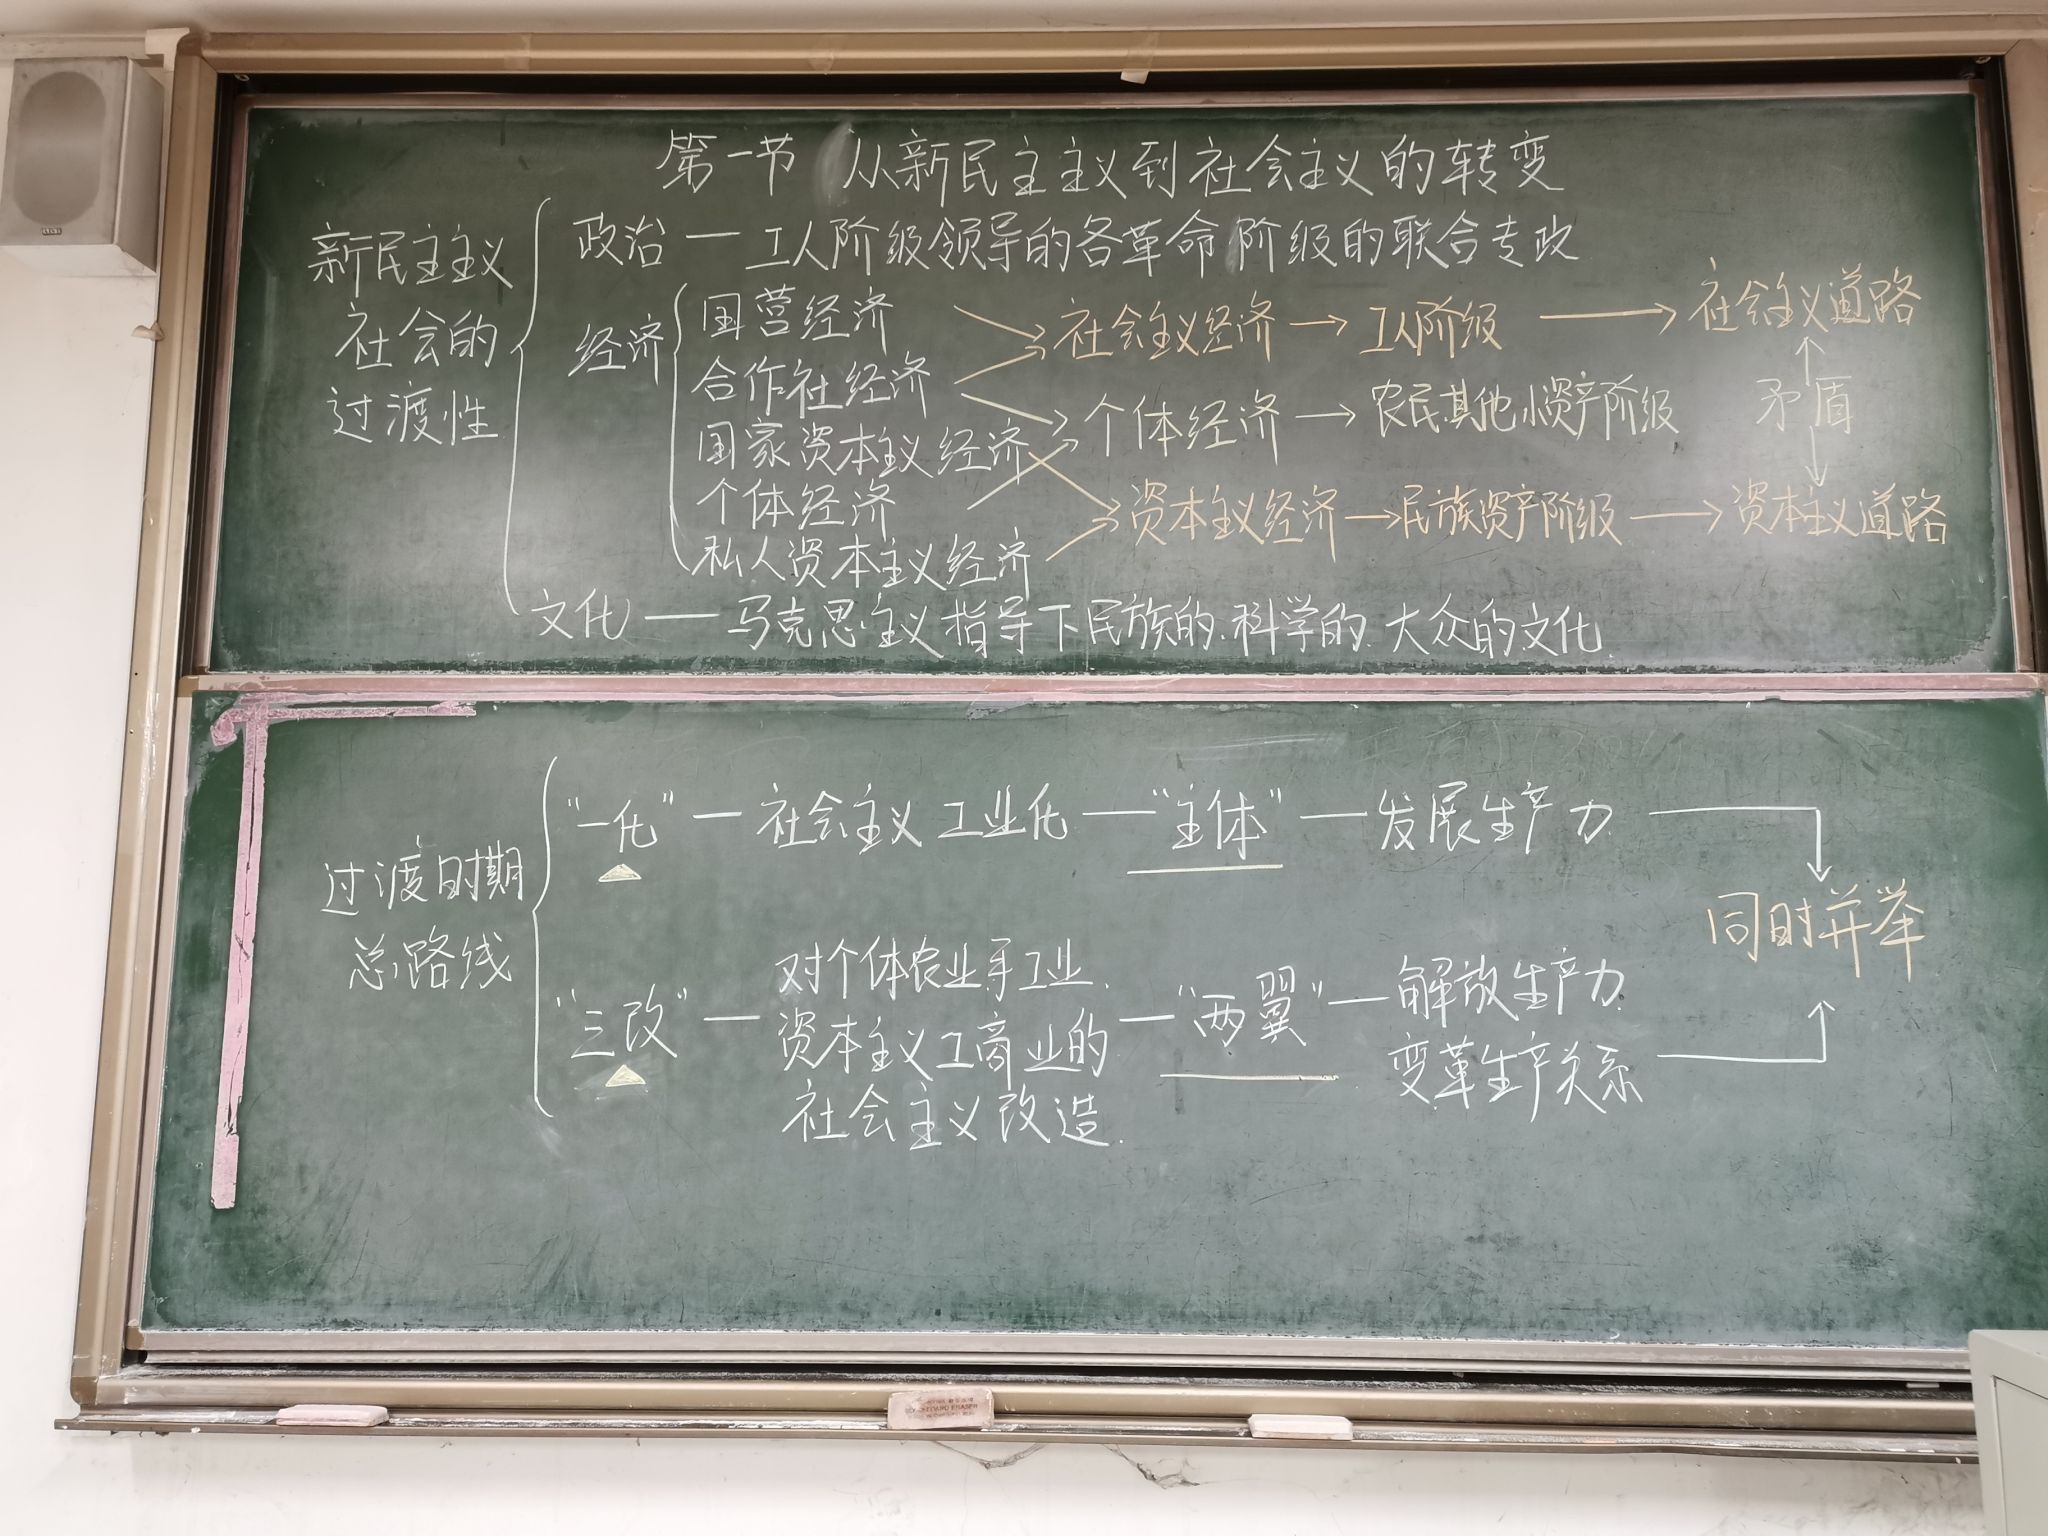 第一节 从新民主主义到社会主义的转变
新民主主义
社会的
过渡性
政治 — 工人阶级领导的各革命阶级的联合专政
经济
国营经济
合作社经济
国家资本主义经济
个体经济
私人资本主义经济
社会主义经济 → 工人阶级 → 社会主义道路
个体经济 → 农民其他小资产阶级
矛盾
资本主义经济 → 民族资产阶级 → 资本主义道路
文化 — 马克思主义指导下民族的.科学的.大众的文化.
过渡时期
总路线
"一化" — 社会主义工业化 — "主体" — 发展生产力
"三改" — 对个体农业.手工业.
资本主义工商业的
社会主义改造.
"两翼" — 解放生产力.
变革生产关系
同时并举